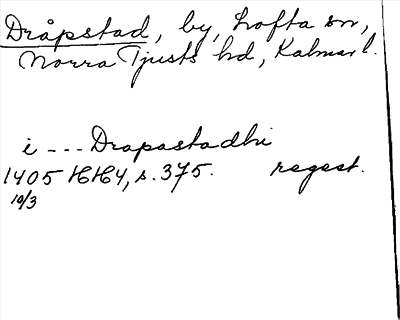 Dråpstad, by, Lofta sn,
Norra Tjusts hd, Kalmar l.
i --- Drapastadhi
1405 HH4, s. 375. regest.
10/3